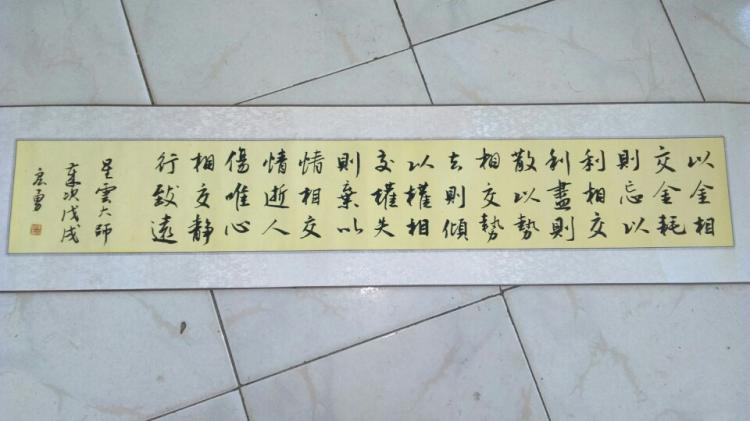 以金相
交金耗
則忘以
利相交
利盡則
散以勢
相交勢
去則傾
以權相
交權失
則棄以
情相交
情逝人
傷唯心
相交静
行致遠
星雲大師
歲次戊戌
宏勇